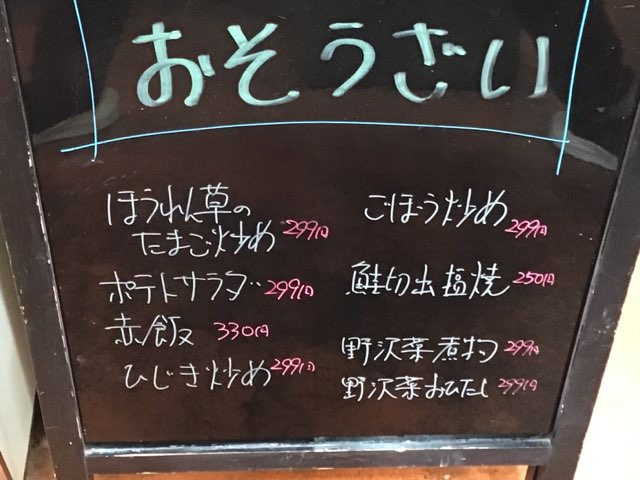 おそうざい
ほうれん草の
たまご炒め 299円
ポテトサラダ 299円
赤飯 330円
ひじき炒め 299円
ごぼう炒め 299円
鮭切出塩焼 250円
野沢菜煮物 299円
野沢菜おひたし 299円